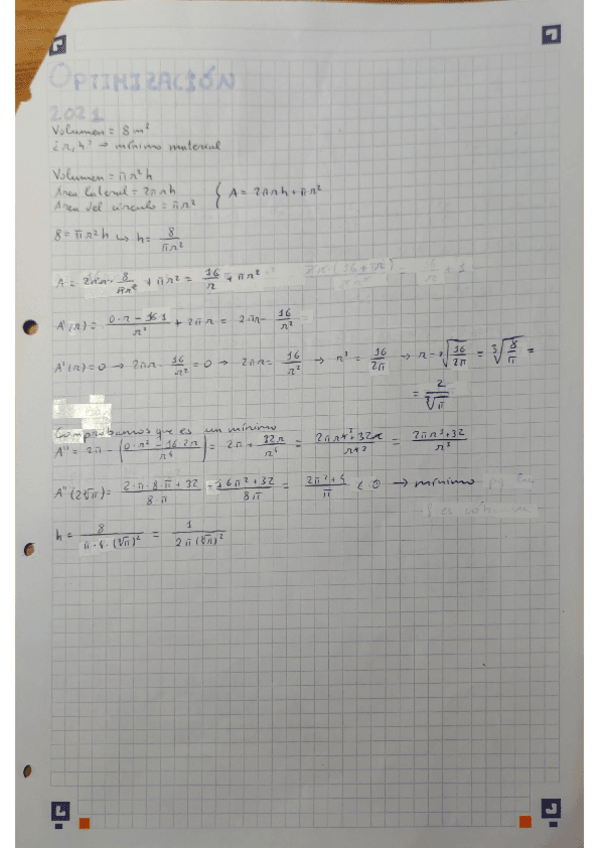 OPTIMIZACIÓN
2021
Volumen = 8 m²
¿r, h? → mínimo material
Volumen = πr²h
Area lateral = 2πrh
Area del círculo = πr²
{ A = 2πrh + πr²
8 = πr²h ↳ h = 8/πr²
A = 2πr · 8/πr² + πr² = 16/r + πr²
A'(r) = (0·r − 16·1)/r² + 2πr = 2πr − 16/r²
A'(r) = 0 → 2πr − 16/r² = 0 → 2πr = 16/r² → r³ = 16/2π → r = ³√(16/2π) = ³√(8/π) =
= 2/³√π
Comprobamos que es un mínimo
A'' = 2π − ((0·r² − 16·2r)/r⁴) = 2π + 32r/r⁴ = (2πr⁴³ + 32r)/r⁴³ = (2πr³ + 32)/r³
A''(2³√π) = (2·π·8·π + 32)/(8·π) = (16π² + 32)/8π = (2π² + 4)/π < 0 → mínimo
h = 8/(π·4·(³√π)²) = 1/(2π(³√π)²)